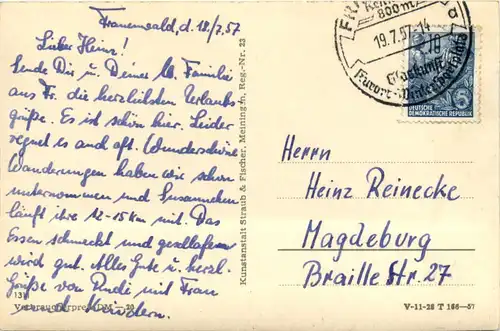 Frauenwald, d. 18/7.57
Lieber Heinz!
Sende Dir u. Deiner lb. Familie
aus Fr. die herzlichsten Urlaubs-
grüße. Es ist schön hier. Leider
regnet es auch oft. Wunderschöne
Wanderungen haben wir schon
unternommen und
läuft ihre 12-15 km mit. Das
Essen schmeckt und geschlafen
wird gut. Alles Gute u. herzl.
Grüße von Rudi mit Frau
und Kindern.
Verbraucherpreis DM -.20
Kunstanstalt Straub & Fischer, Meiningen, Reg.-Nr. 23
800m
19.7.57-14
a
DEUTSCHE
DEMOKRATISCHE REPUBLIK
Herrn
Heinz Reinecke
Magdeburg
Braille Str. 27
V-11-28 T 166-57